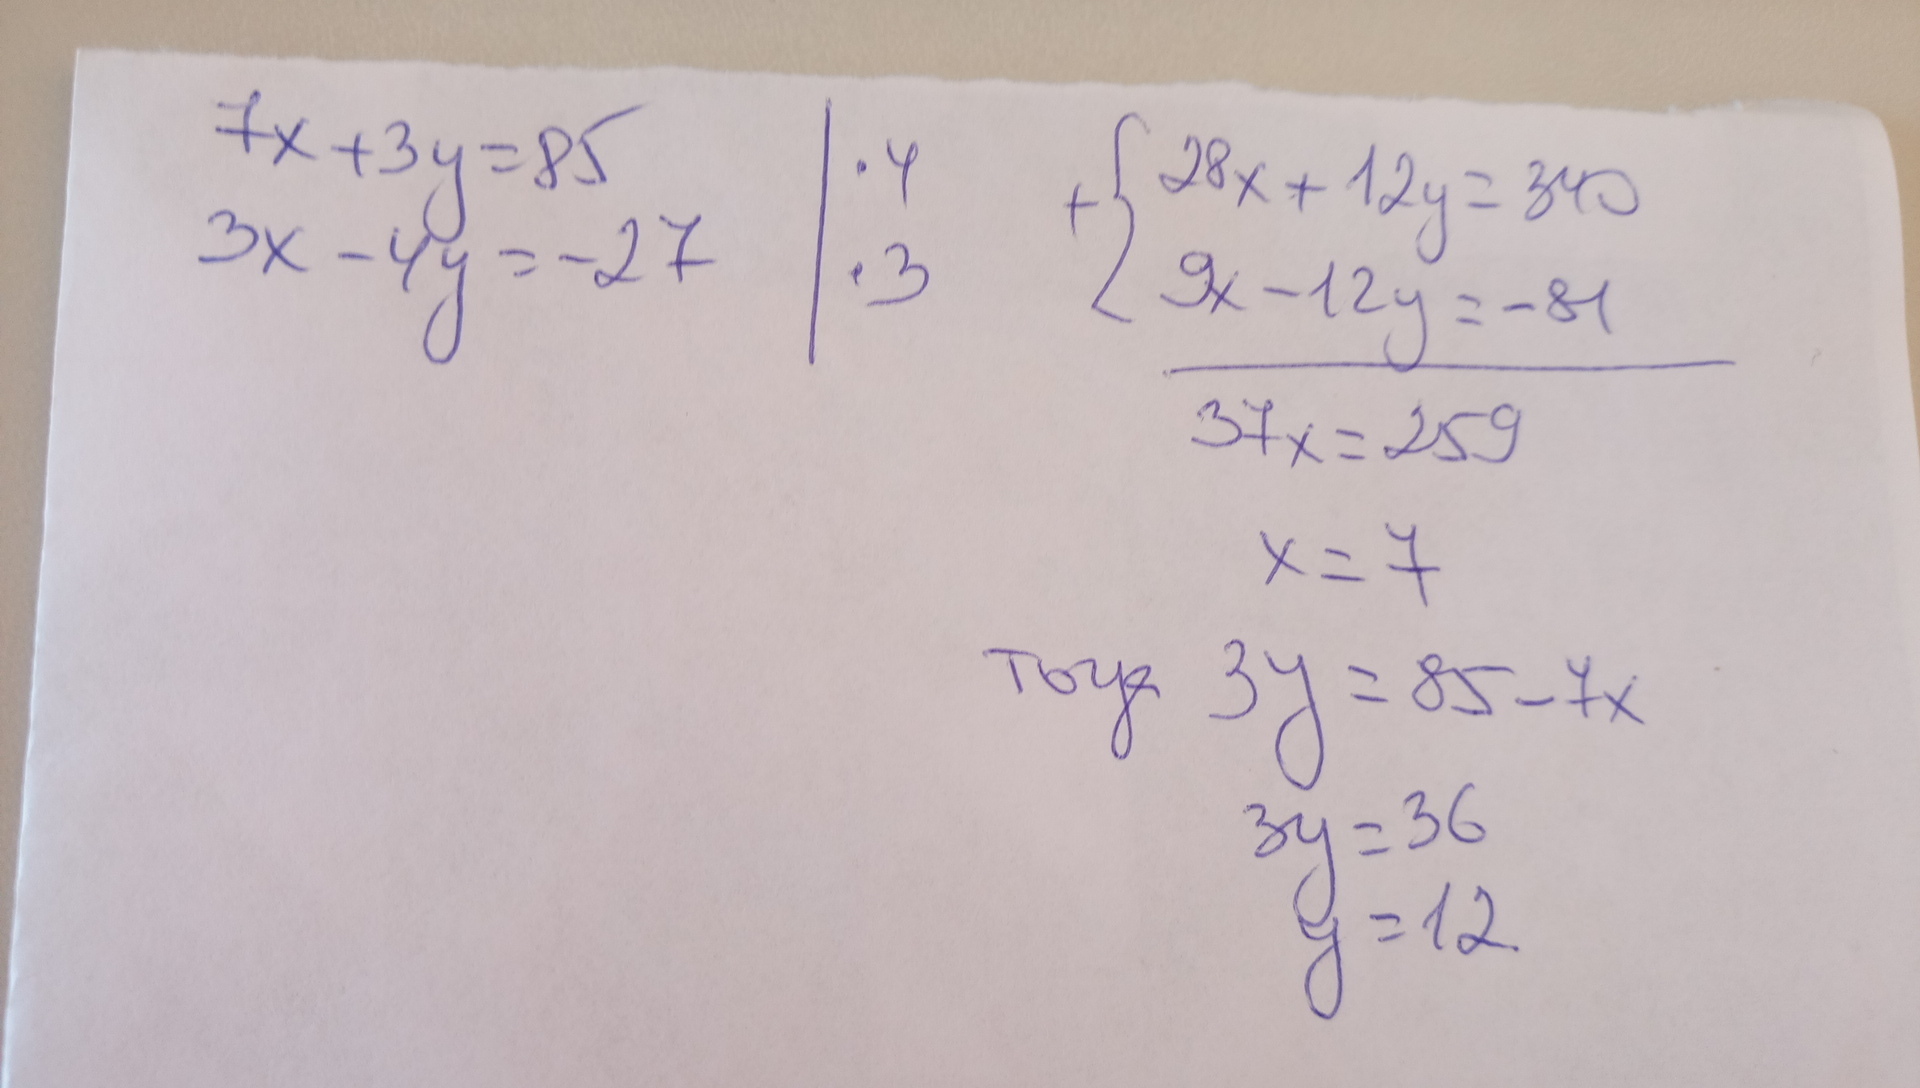 7x+3y=85 | ·4
3x-4y=-27 | ·3
+{ 28x+12y=340
9x-12y=-81
37x=259
x=7
тогда 3y=85-7x
3y=36
y=12